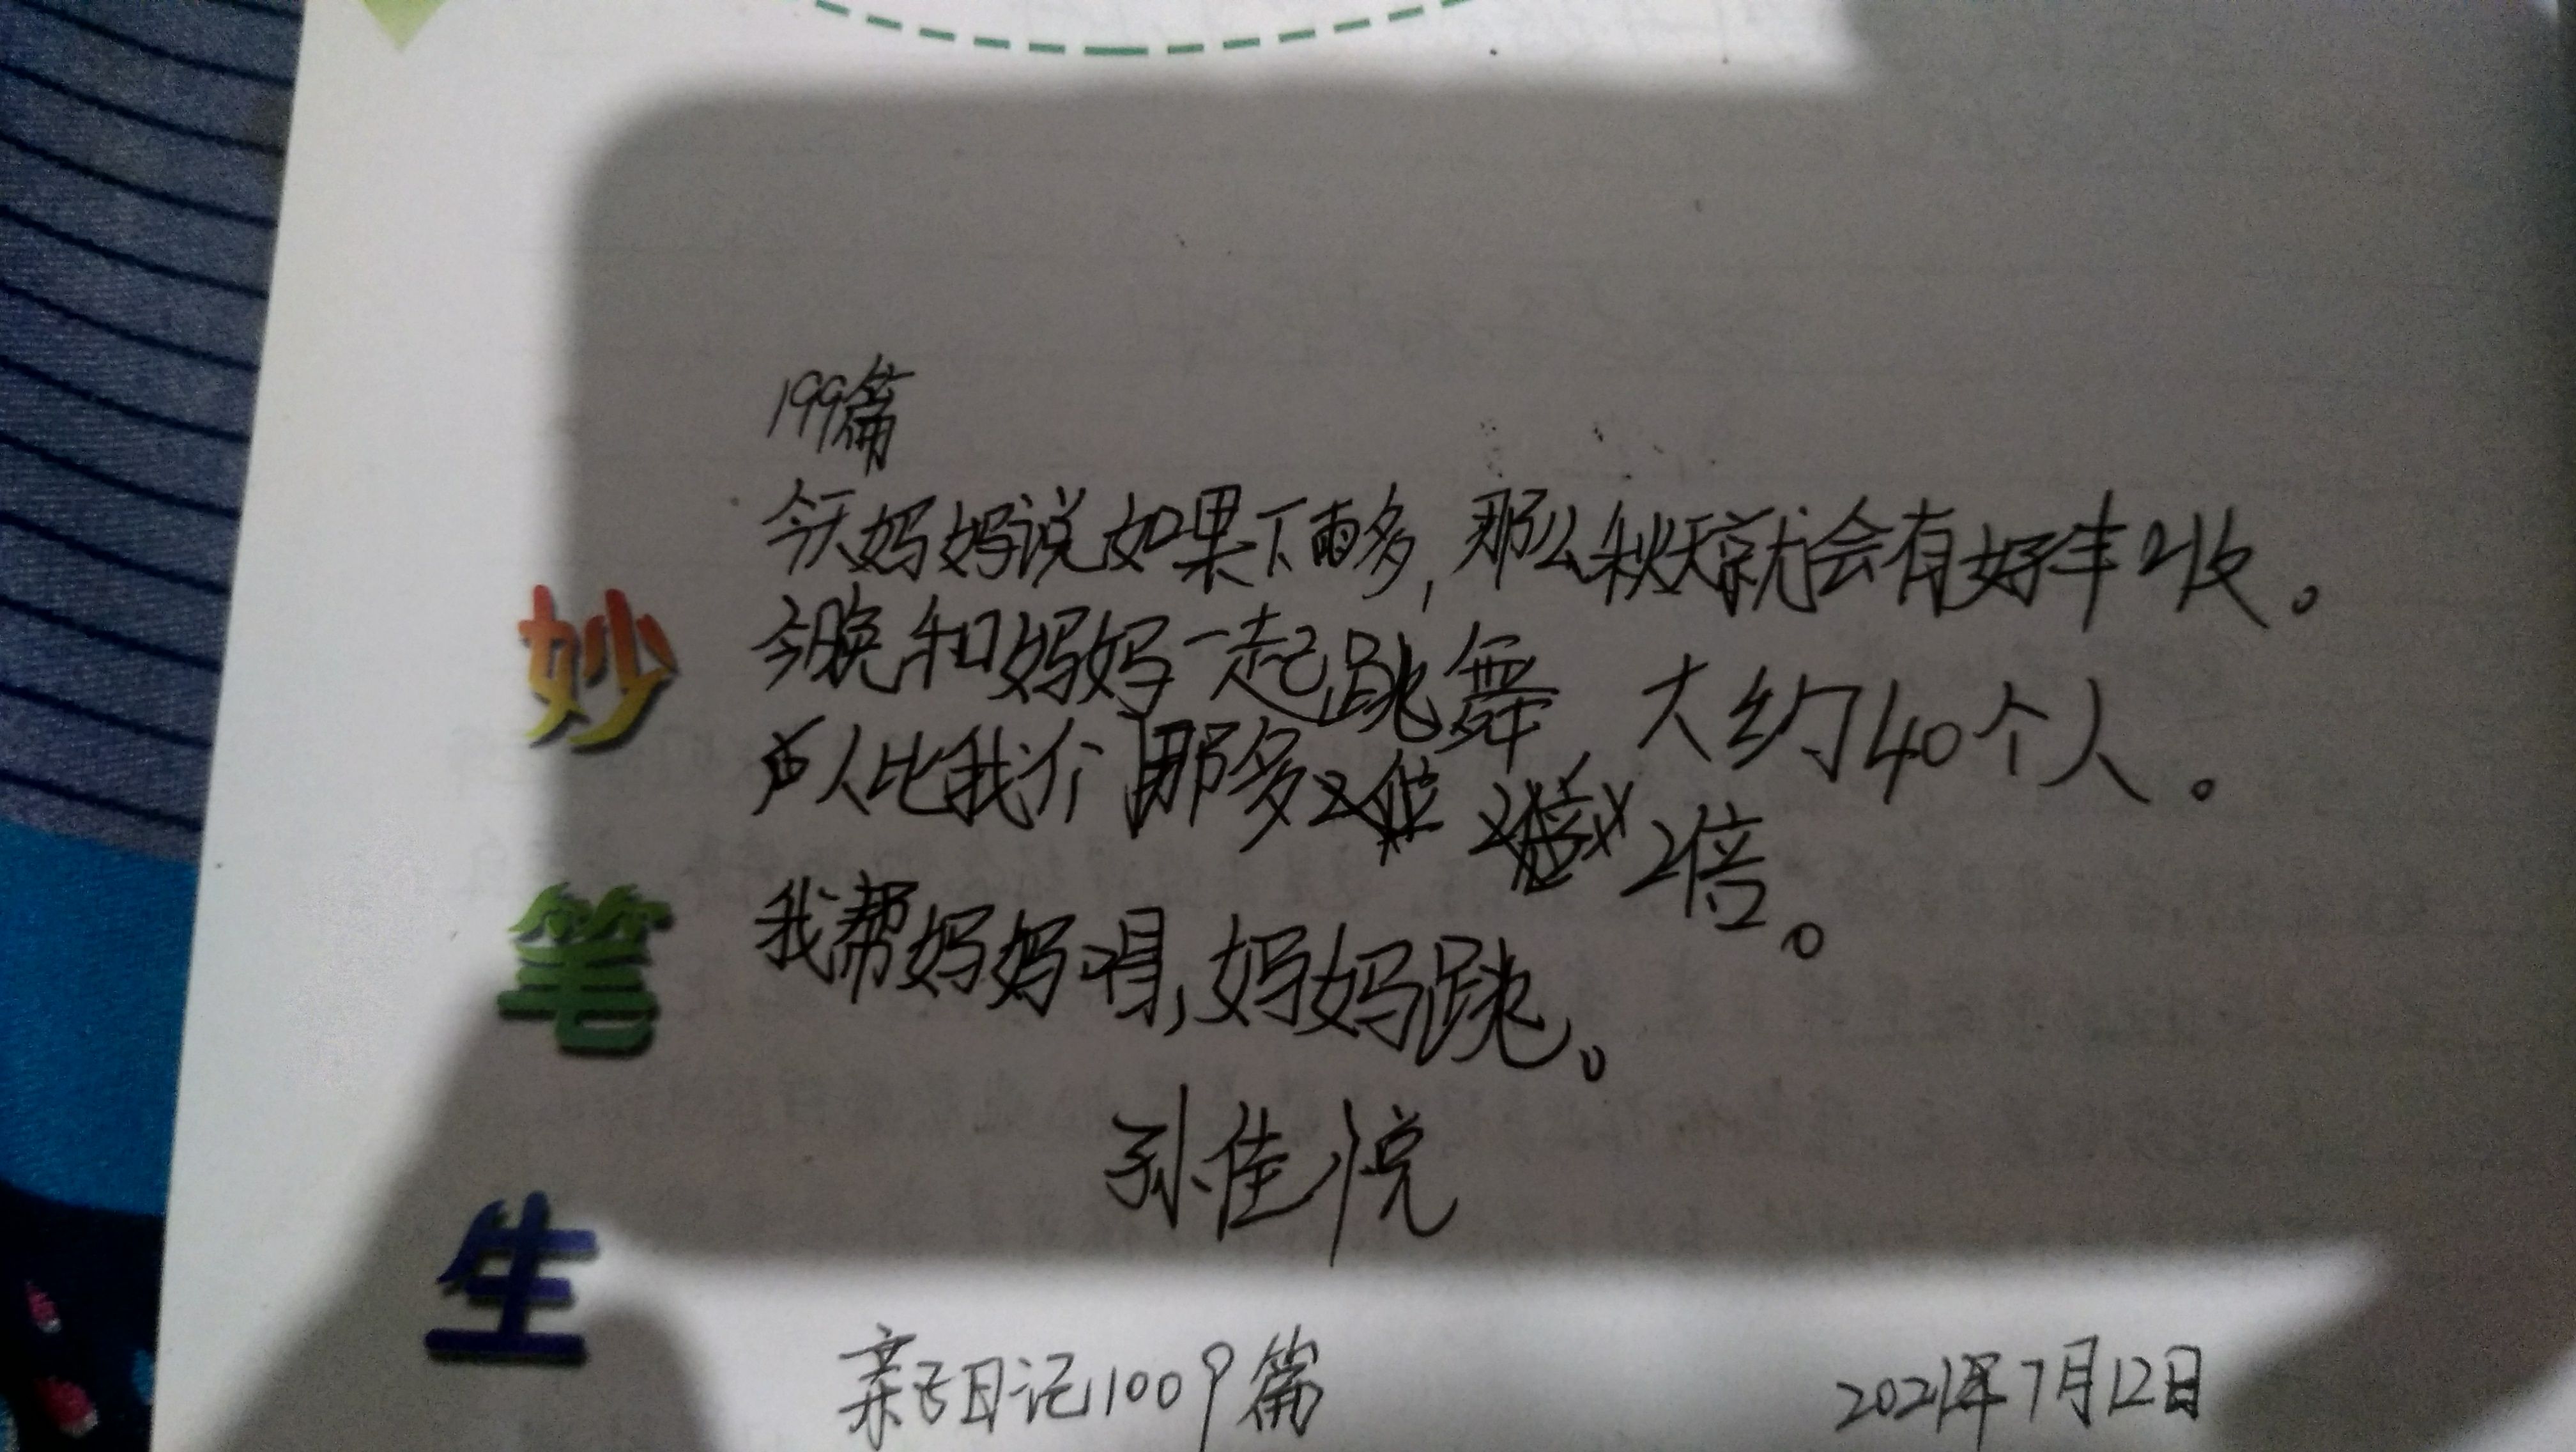 199篇
今天妈妈说如果下雨多,那么秋天就会有好丰收。
今晚和妈妈一起跳舞,大约40个人。
人比我们那多2倍。
我帮妈妈唱,妈妈跳。
孙佳悦
妙笔生
亲子日记1009篇
2021年7月12日